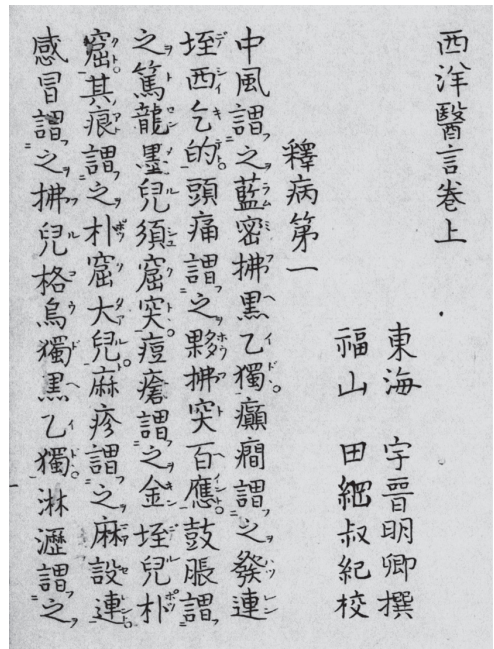 西洋醫言卷上
東海　宇晉明卿撰
福山　田叔紀校
釋病第一
中風謂之藍密拂黒乙獨癲癇謂之發連
垤西乞的頭痛謂之夥拂突百應鼓脹謂
之篤龍墨兒須窟突痘瘡謂之金垤兒朴
窟其痕謂之朴窟大兒麻疹謂之麻設連
感冒謂之拂兒格烏獨黒乙獨淋瀝謂之